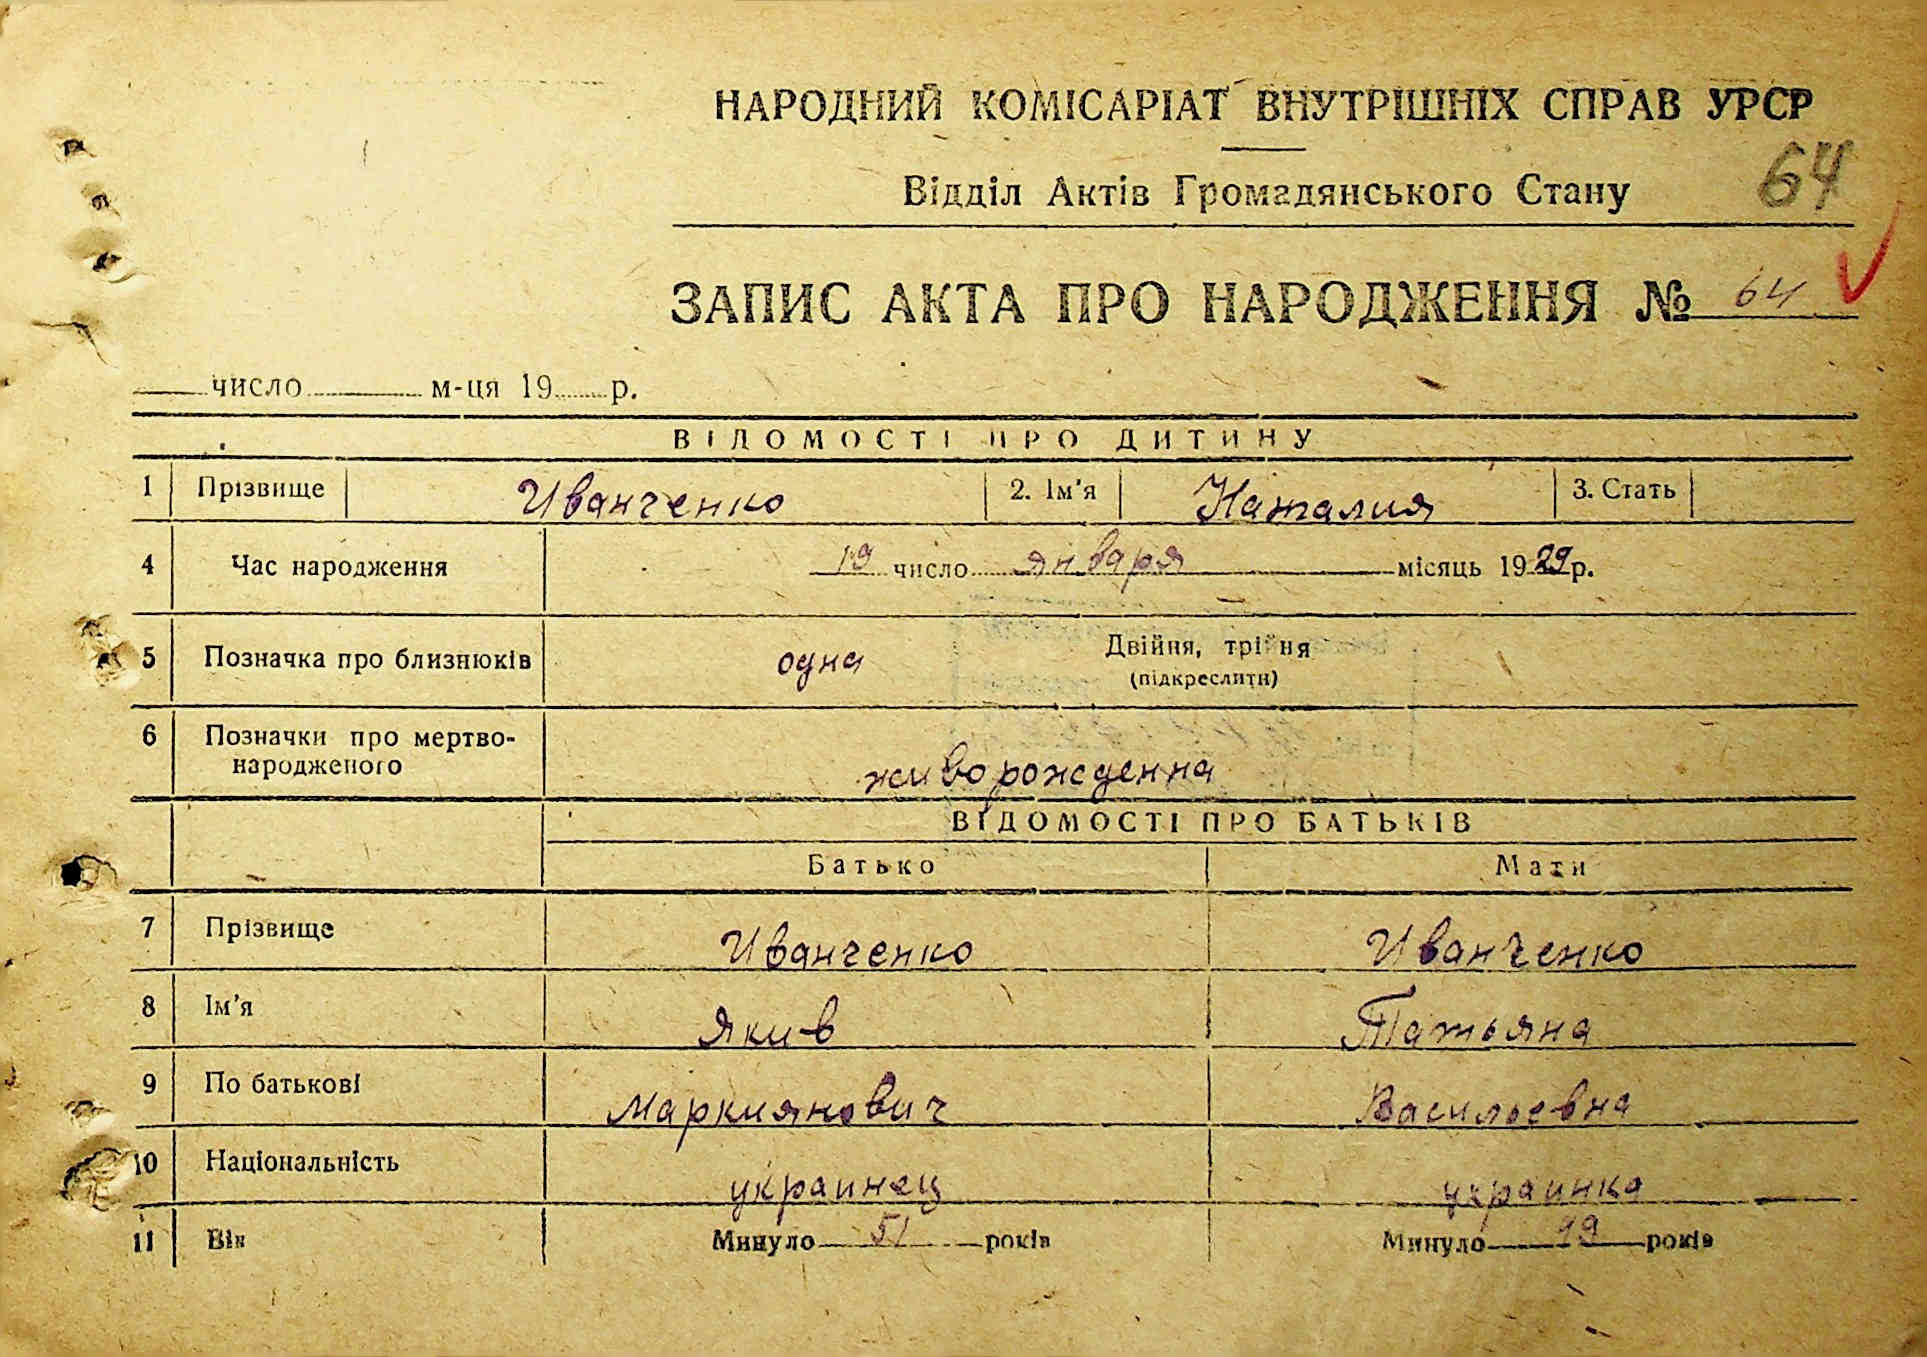 НАРОДНИЙ КОМІСАРІАТ ВНУТРІШНІХ СПРАВ УРСР
64
Відділ Актів Громадянського Стану
ЗАПИС АКТА ПРО НАРОДЖЕННЯ № 64
число м-ця 19 р.
ВІДОМОСТІ ПРО ДИТИНУ
1 Прізвище Иванченко 2. Ім'я Наталия 3. Стать
4 Час народження 19 число января місяць 1929 р.
5 Позначка про близнюків одна Двійня, трійня
(підкреслити)
6 Позначки про мертво-
народженого живорожденна
ВІДОМОСТІ ПРО БАТЬКІВ
Батько Мати
7 Прізвище Иванченко Иванченко
8 Ім'я Якив Татьяна
9 По батькові Маркиянович Васильевна
10 Національність украинец украинка
11 Вік Минуло 51 років Минуло років